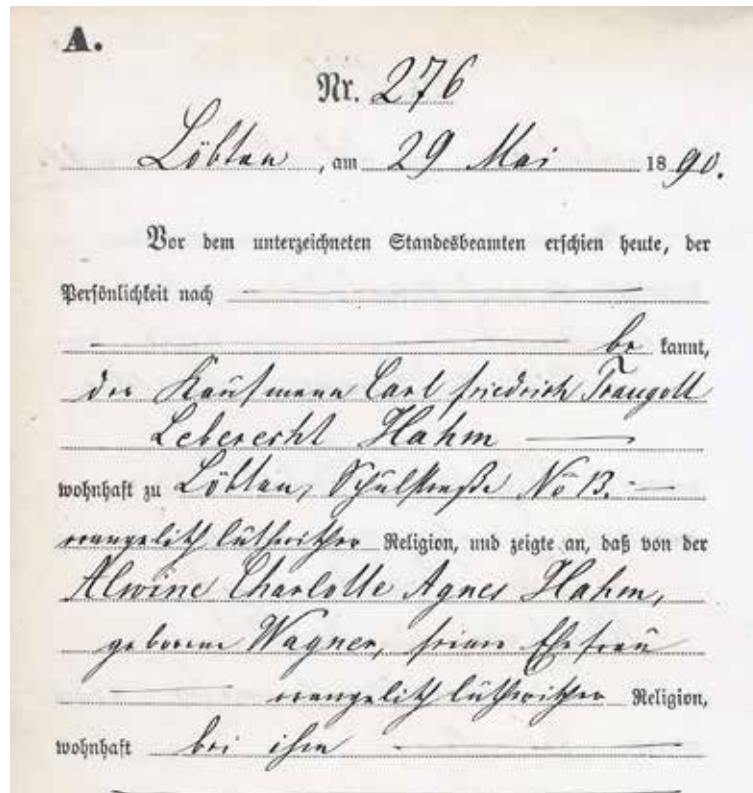 A.
Nr. 276
Löbtau, am 29 Mai 1890.
Vor dem unterzeichneten Standesbeamten erschien heute, der
Persönlichkeit nach
be kannt,
der Kaufmann Carl Friedrich Traugott
Leberecht Hahm
wohnhaft zu Löbtau, Schulstraße No 13.
evangelisch lutherischer Religion, und zeigte an, daß von der
Alwine Charlotte Agnes Hahm,
geborene Wagner, seiner Ehefrau
evangelisch lutherischer Religion,
wohnhaft bei ihm